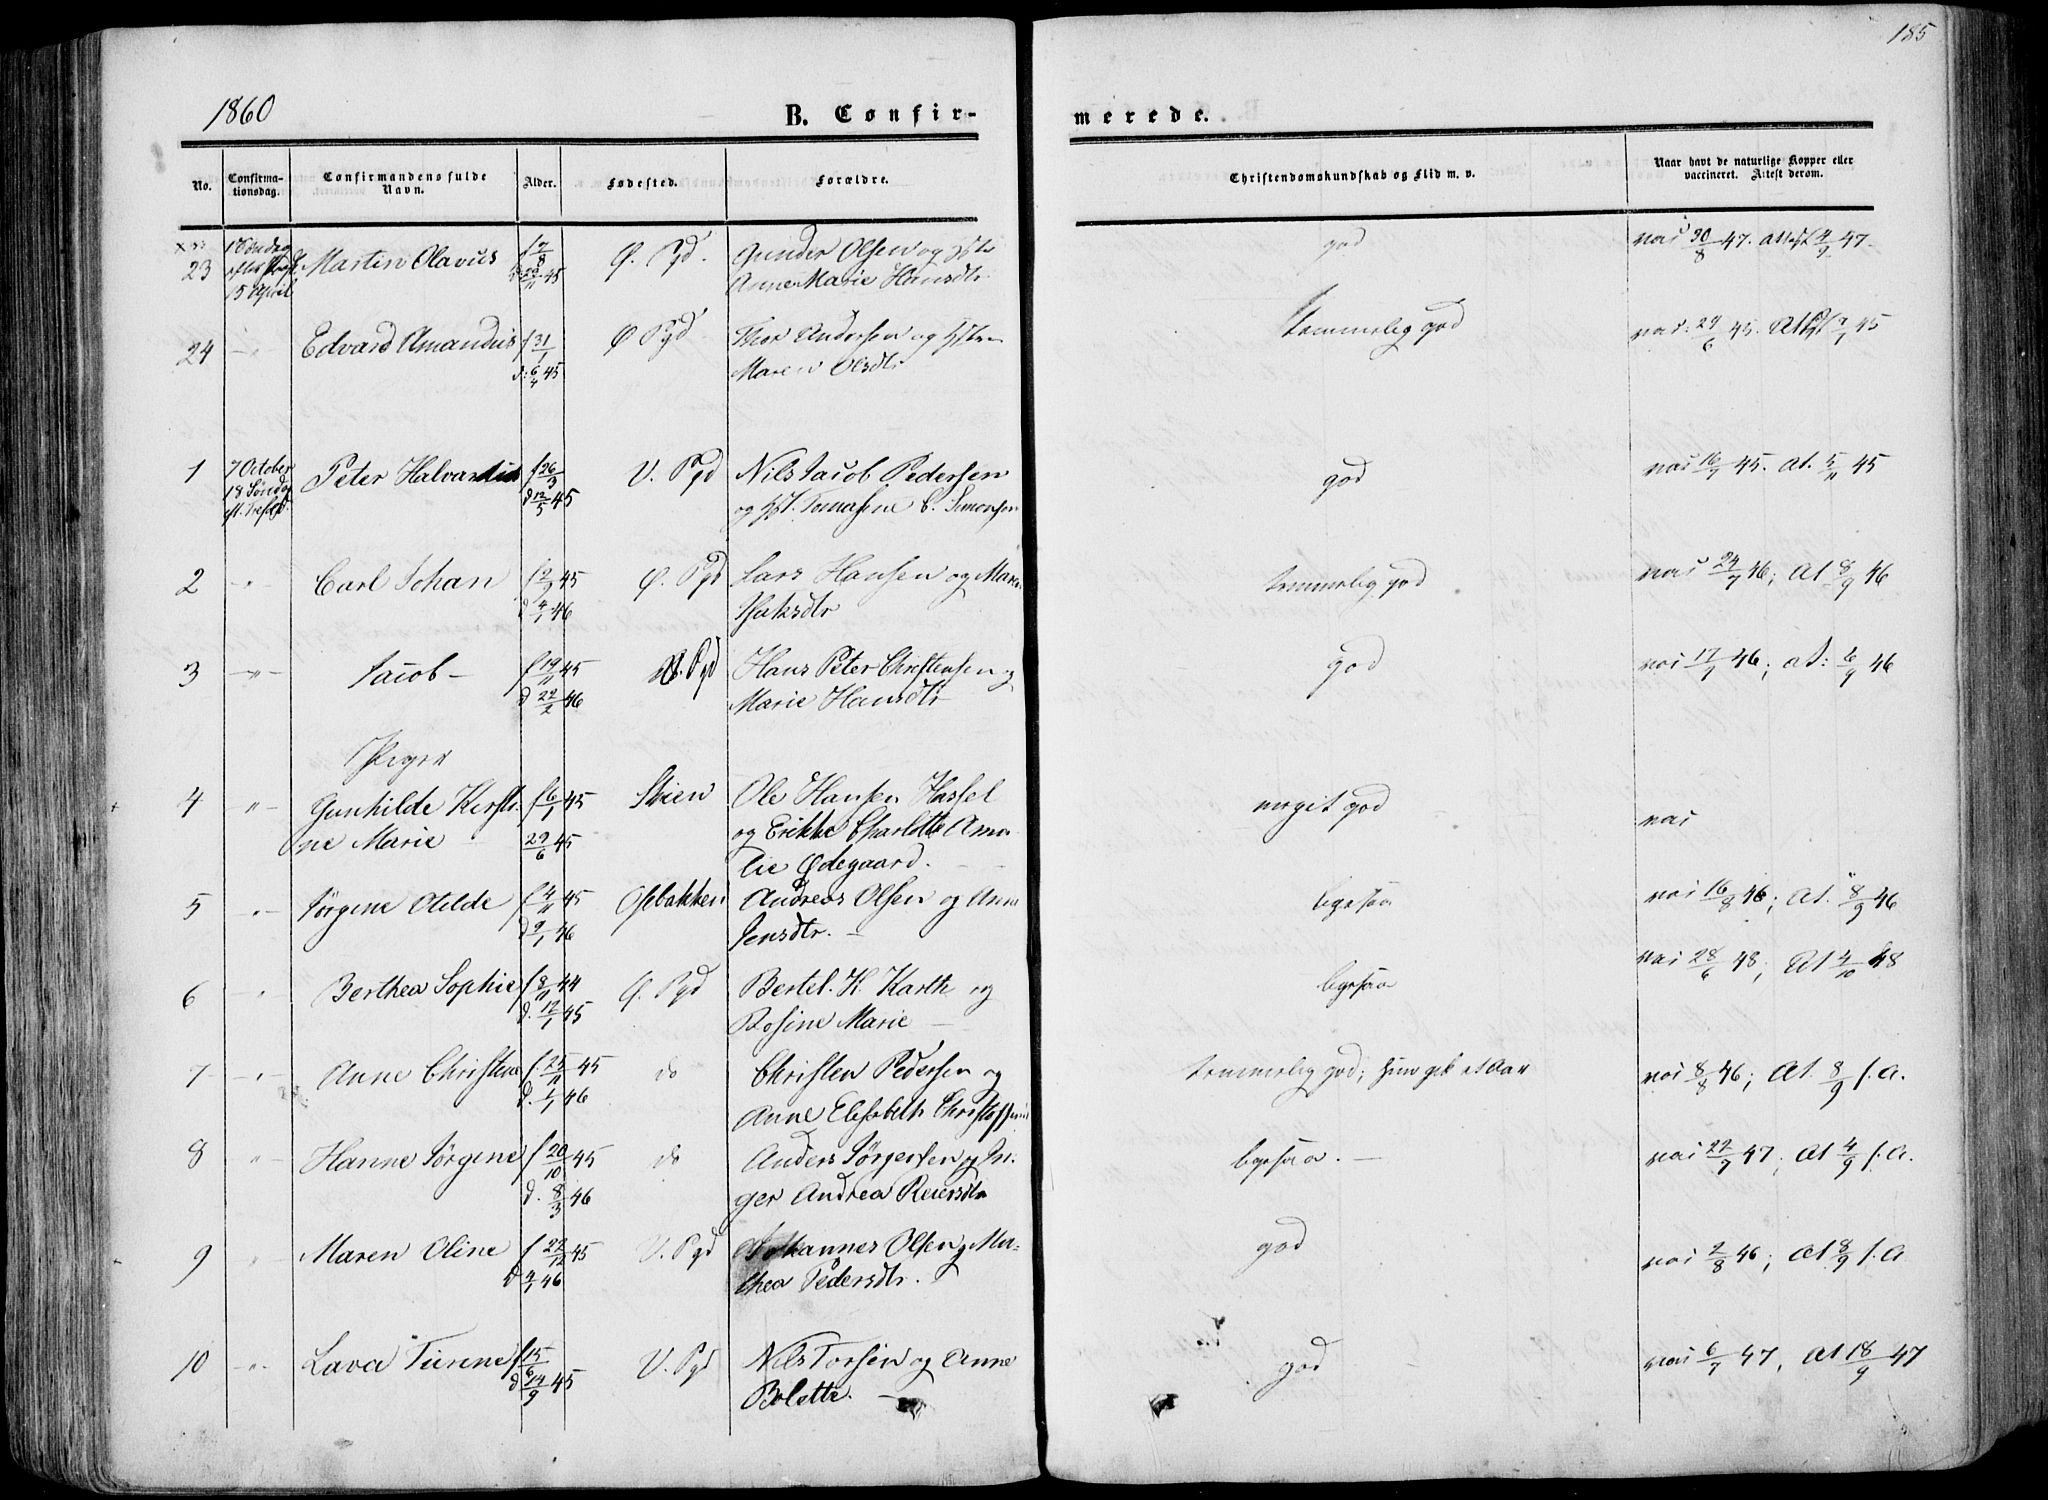 185
1860
B. Confir-
merede.
No.
Confirma-
tionsdag.
Confirmandens fulde
Navn.
Alder.
Fødested.
Forældre.
Christendomskundskab og Flid m. v.
Naar havt de naturlige Kopper eller
vaccineret. Attest derom.
23 1 Søndag efter Paaske 15 April Martin Olavus f 7/8 d 23/11 45 Ø. Pgd. Gunder Olsen og Hstr Anne Marie Hansdtr. god vac 30/8 47. attest 4/9 47.
24 -"- Edvard Amandus f 31/1 d: 6/4 45 Ø Pgd Thor Andersen og Hstru Maren Olsdtr temmelig god vac: 24/6 45. Att 4/7 45
1 7 October 18 Søndag eft. Trefold. Peter Halvardius f 26/3 d 12/5 45 V. Pgd Nils Jacob Pedersen og Hst. Tomasine C. Simonsen god vac 16/7 45. At. 5/11 45
2 -"- Carl Johan f 2/9 45 d 4/1 46 Ø. Pgd Lars Hansen og Maren Isaksdtr temmelig god vac 24/7 46; At 8/9 46
3 -"- Jacob - f 19/11 45 d 22/2 46 V. Pgd Hans Peter Christensen og Marie Hansdtr god vac 17/7 46; at: 6/9 46
Piger
4 -"- Gunhilde Kirsti-ne Marie f 6/1 45 29/6 45 Skien Ole Hansen Hassel og Erikke Charlotte Ama-lie Ødegaard. - meget god vac
5 -"- Jørgine Otilde f 4/11 45 d 9/1 46 Osebakken Andreas Olsen og Anne Jensdtr. - ligesaa vac 16/8 46; At. 8/9 46
6 -"- Berthea Sophie f 8/11 44 d. 12/1 45 Ø. Pgd Bertel K. Karth og Rosine Marie - ligesaa vac 28/6 48; At 4/10 48
7 -"- Anne Christine f. 25/11 45 d. 1/1 46 do Christen Pedersen og Anne Elisabeth Christoffersd temmelig god; hun gik et Aar vac 8/8 46; At. 8/9 s. A.
8 -"- Hanne Jørgine f 20/10 45 d. 8/3 46 do Anders Jørgensen og In-ger Andrea Reiersdtr ligesaa. - vac 22/7 47; At 4/9 s. A.
9 -"- Maren Oline f 22/12 45 d 4/1 46 V. Pgd Johannes Olsen og Mar-thea Pedersdtr. god vac 2/8 46; At 8/9 s. A
10 -"- Lava Tinne f 15/6 d 14/9 45 V. Pgd Nils Torsen og Anne Bolette. - god vac 6/7 47, At 18/9 47